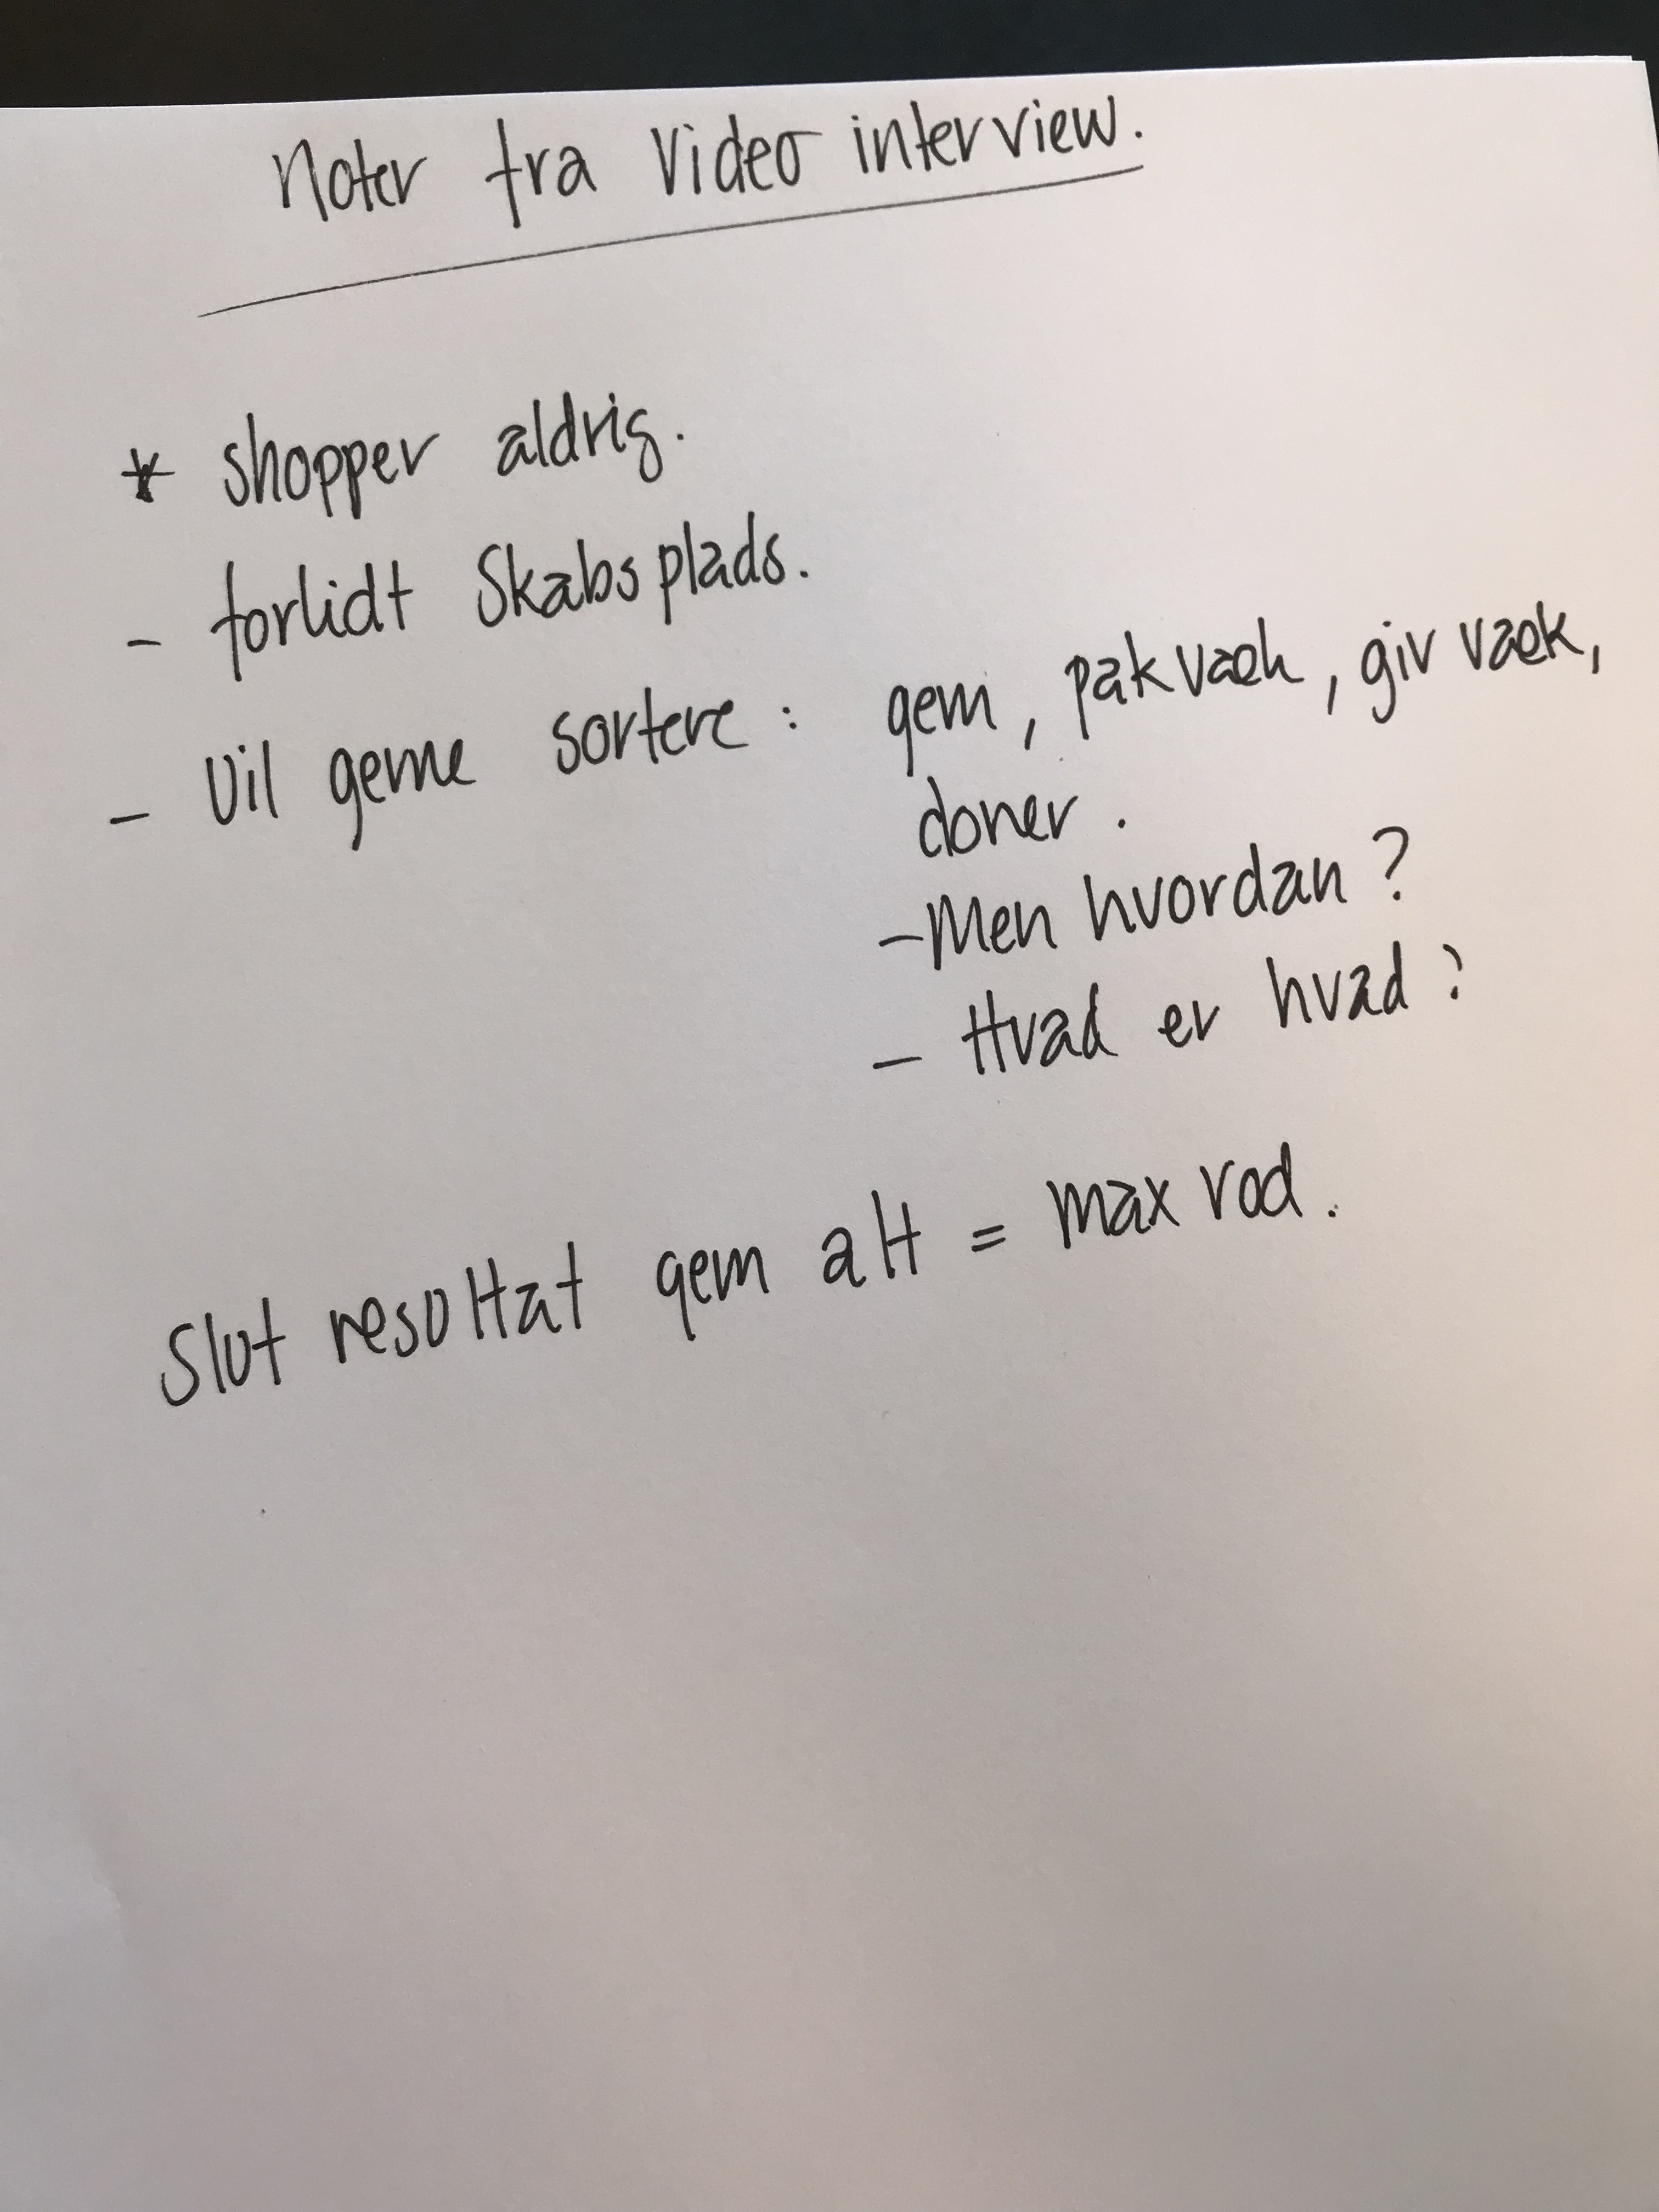 Noter fra Video interview.
* shopper aldrig.
- forlidt Skabsplads.
- Vil gerne sortere : gem, pak væk, giv væk,
doner.
- Men hvordan ?
- Hvad er hvad ?
Slut resultat gem alt = max rod.